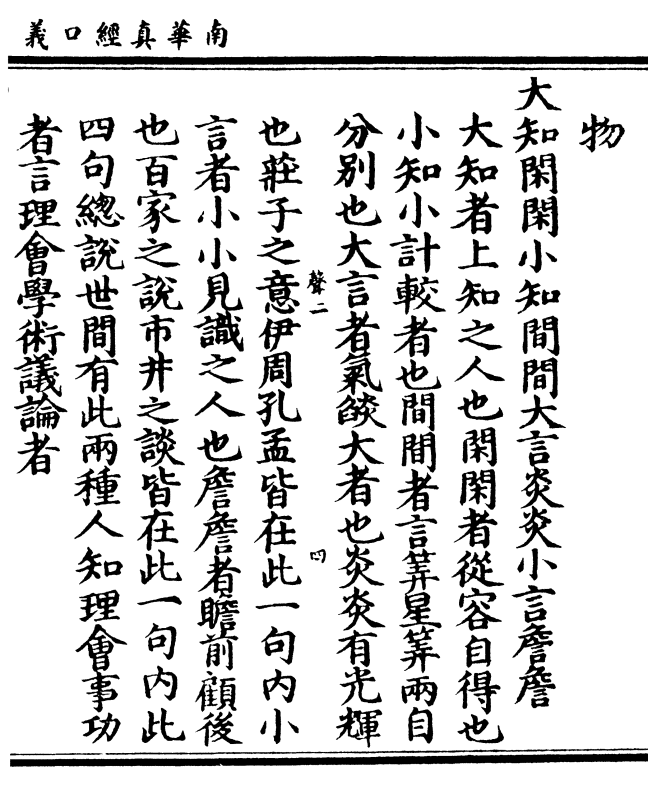 南華真經口義
物
大知閑閑小知間間大言炎炎小言詹詹
大知者上知之人也閑閑者從容自得也
小知小計較者也間間者言筭星筭兩自
分別也大言者氣燄大者也炎炎有光輝
也莊子之意伊周孔孟皆在此一句內小
言者小小見識之人也詹詹者瞻前顧後
也百家之說市井之談皆在此一句內此
四句總說世間有此兩種人知理會事功
者言理會學術議論者
聲二
凹